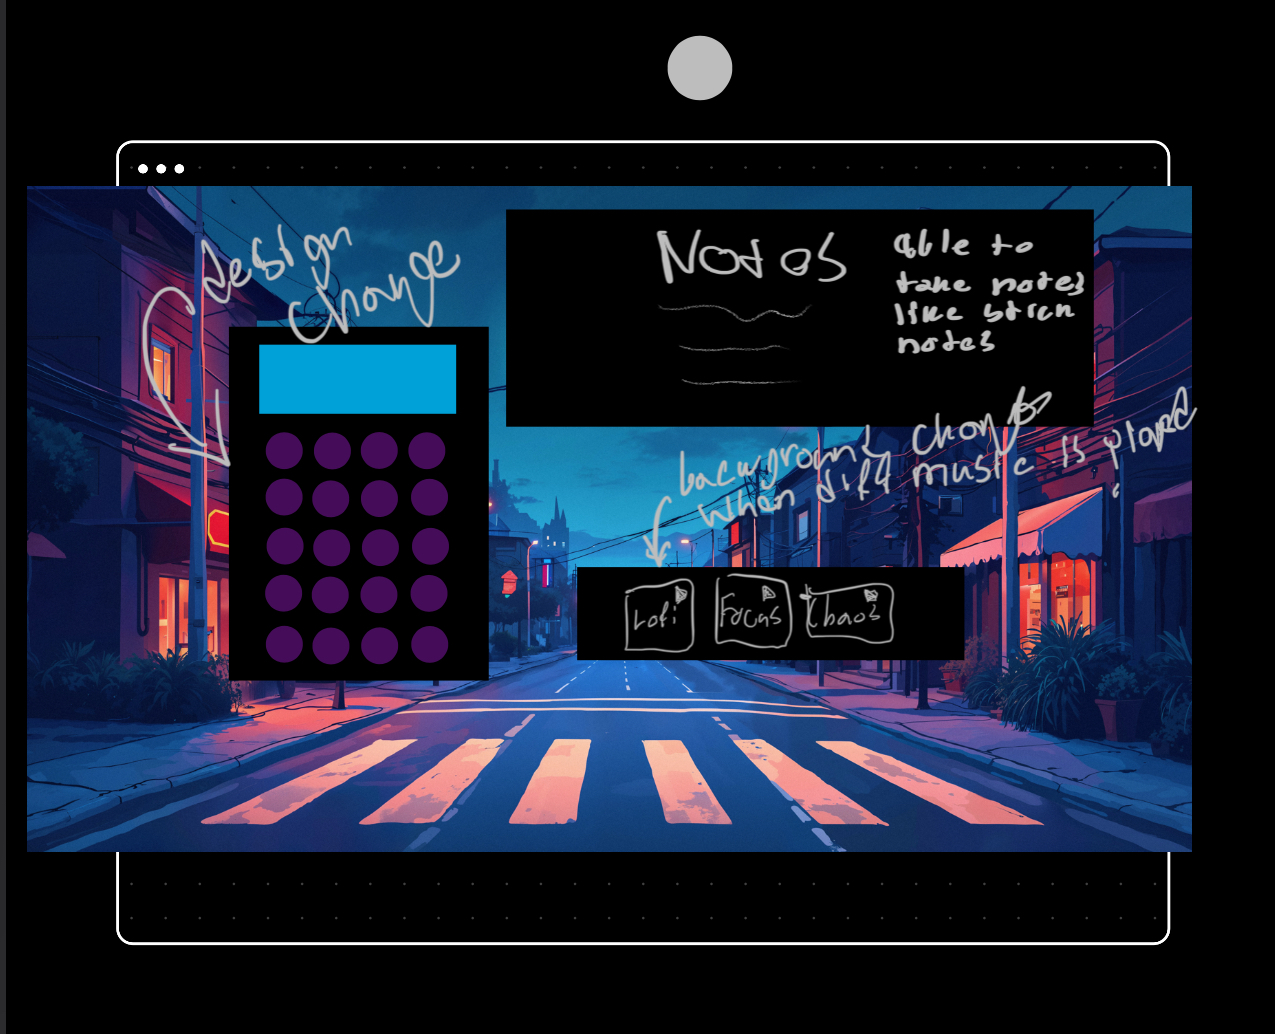 design
change
Notes
able to
take notes
like stick
notes
background change
when diff music is played
Lofi
Focus
Chaos